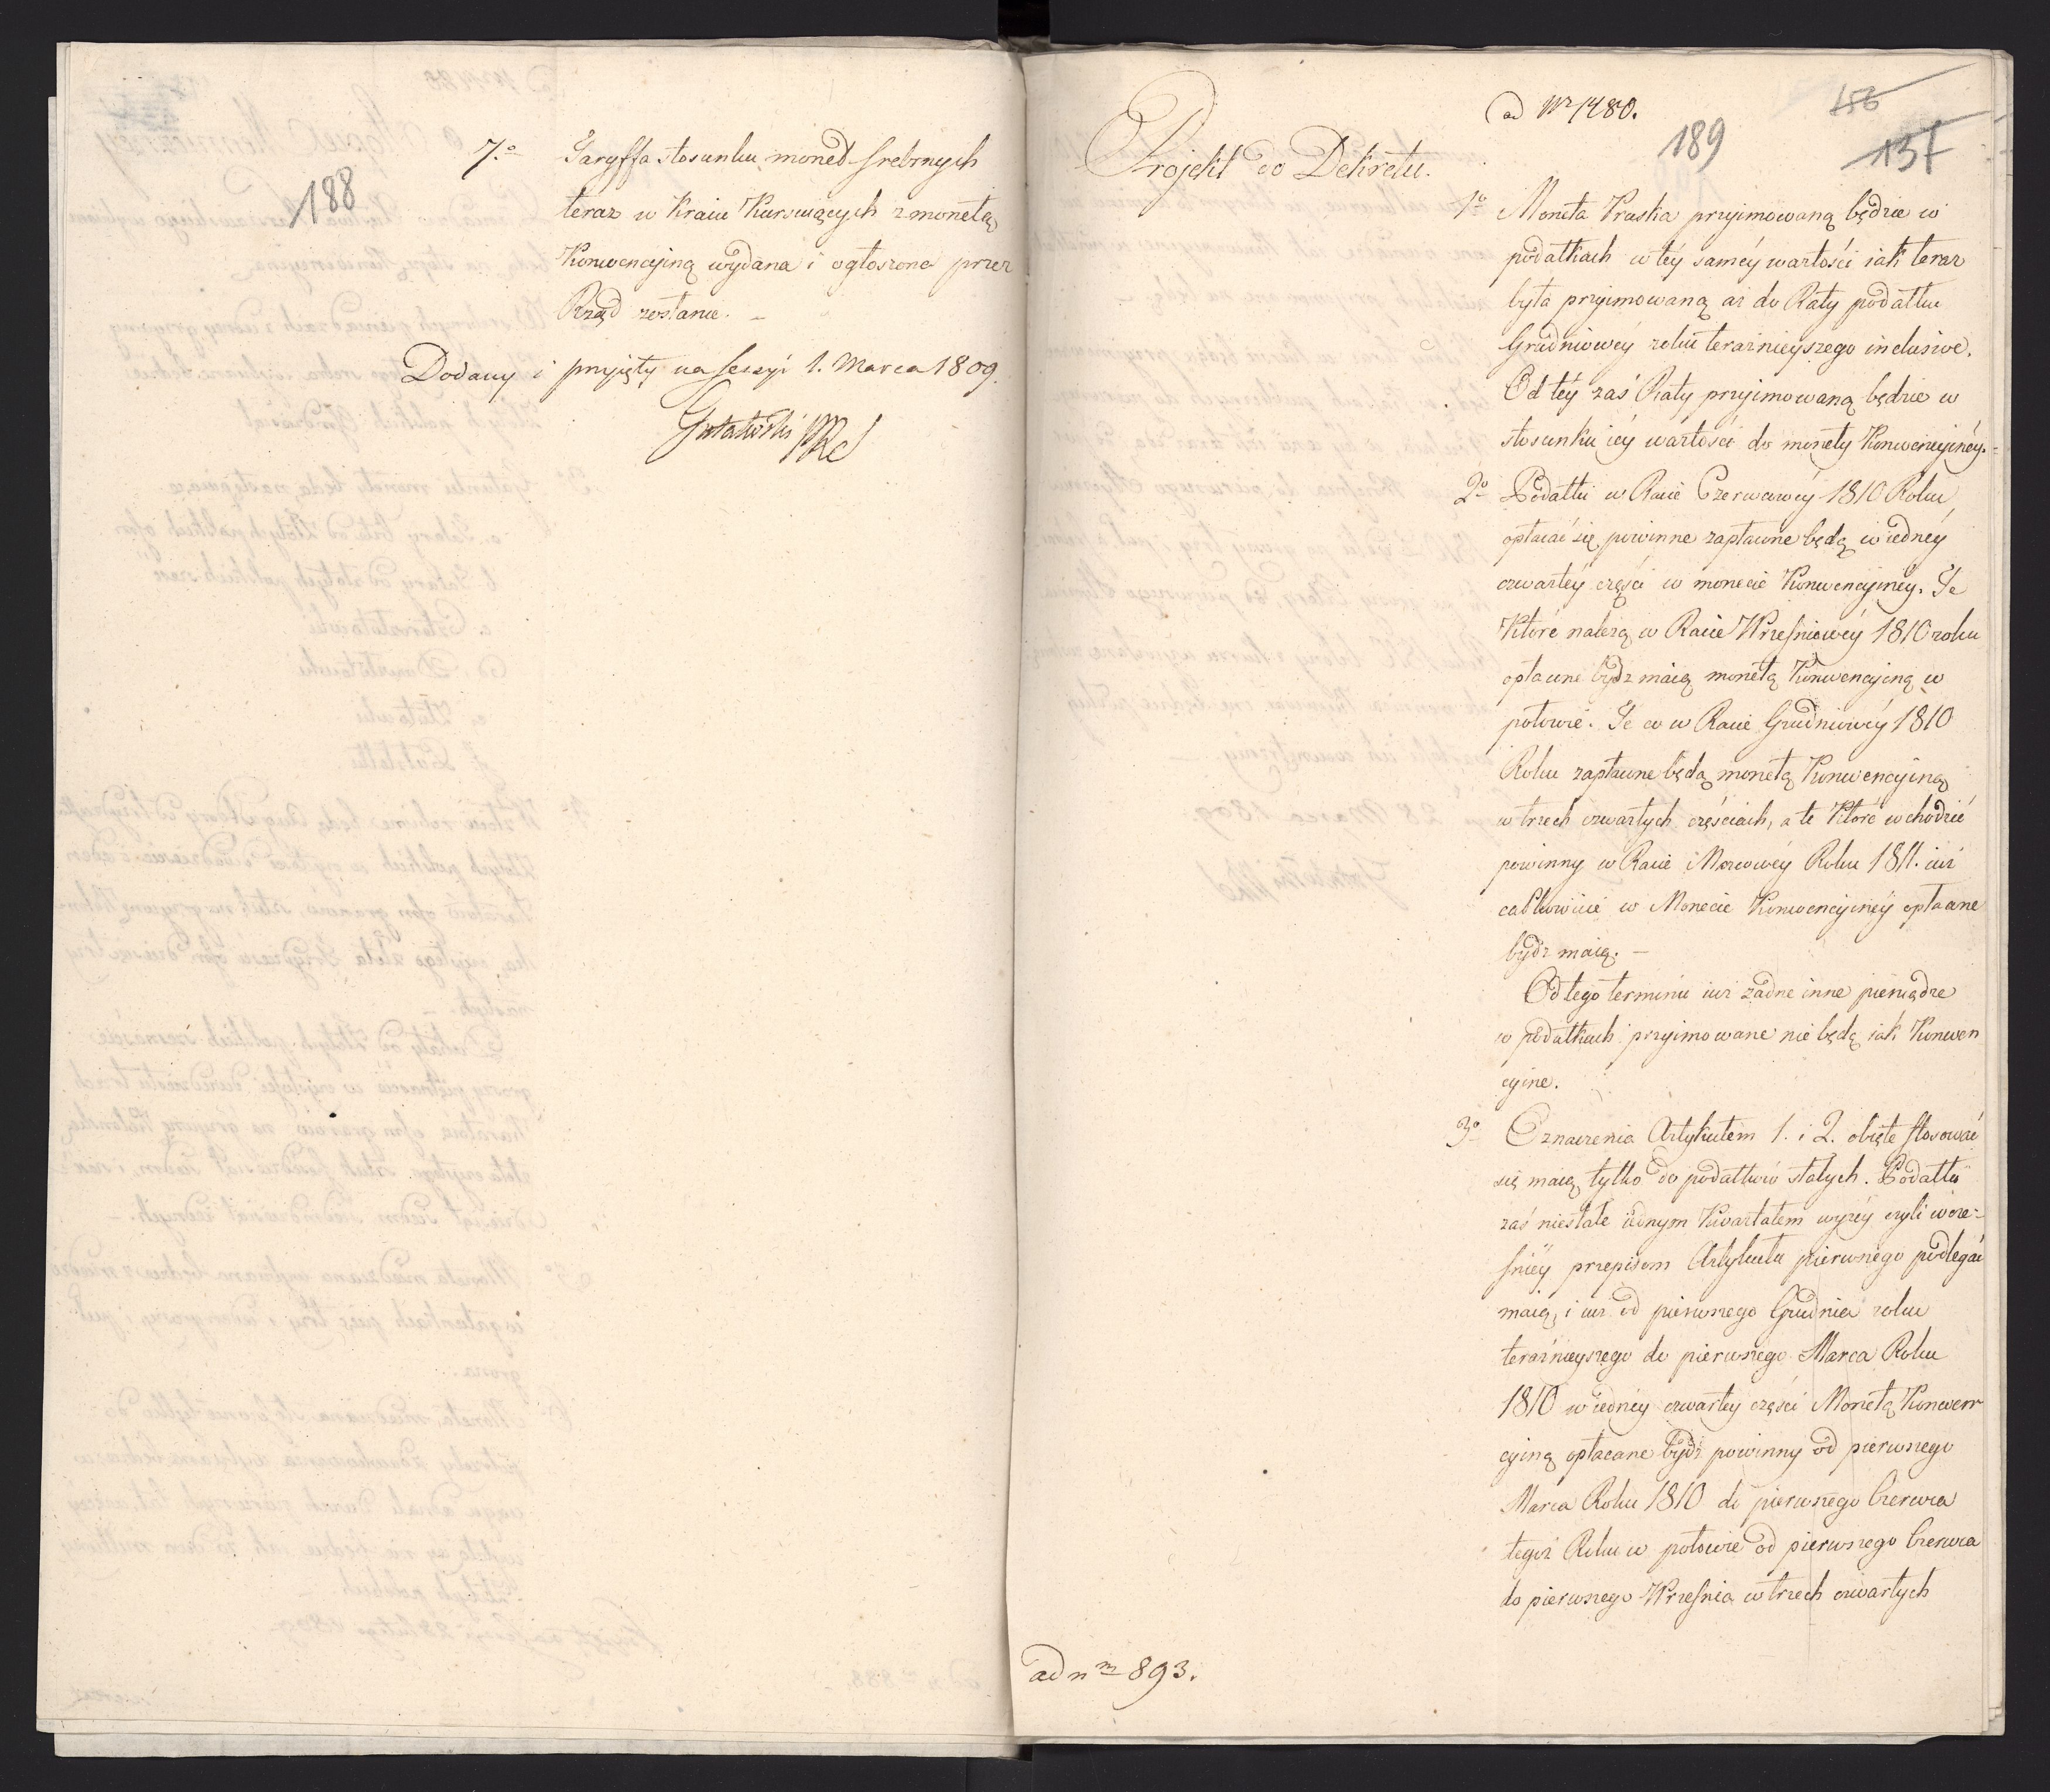 188
7.o Taryffa stosunku monet srebrnych
teraz w Kraiu Kursuiących z monetą
Konwencyiną wydana i ogłoszona przez
Rząd zostanie. –
Dodany i przyięty na sessyi 1. Marca 1809.
ad Nr 1480.
189
156
137
Projekt do Dekretu.
1o Moneta Pruska przyimowaną będzie w
podatkach w téy saméy wartości iak teraz
była przyimowaną aż do Raty podatku
Grudniowéy roku teraznieyszego inclusive.
Od téy zaś Raty przyimowaną będzie w
stosunku iéy wartości do monety Konwencyinéy.
2o Podatki w Racie Czerwcowéy 1810 Roku,
opłacać się powinne zapłacone będą w iednéy
czwartéy części w monecie Konwencyinéy. Te
Które należą w Racie Wrześniowéy 1810 roku
opłacone bydz maią monetą Konwencyiną w
połowie. Te co w Racie Grudniowéy 1810
Roku zapłacone będą monetą Konwencyiną
w trzech czwartych częściach, a te Które wchodzić
powinny w Racie Marcowéy Roku 1811. iuż
całkowicie w Monecie Konwencyinéy opłacane
bydz maią. –
Od tego terminu iuż żadne inne pieniądze
w podatkach przyimowane nie będą iak Konwen
cyine.
3o Oznaczenia Artykułem 1. i 2. obięte stosować
się maią tylko do podatków stałych. Podatki
zaś niestałe iednym Kwartałem wyżéy czyli wcze-
śniéy przepisom Artykułu pierwszego podlegać
maią, i iuż od pierwszego Grudnia roku
teraznieyszego do pierwszego Marca Roku
1810 w iednéy czwartéy części Monetą Konwen
cyiną opłacane bydź powinny od pierwszego
Marca Roku 1810 do pierwszego Czerwca
tegoż Roku w połowie od pierwszego Czerwca
do pierwszego Września w trzech czwartych
ad nm 893.